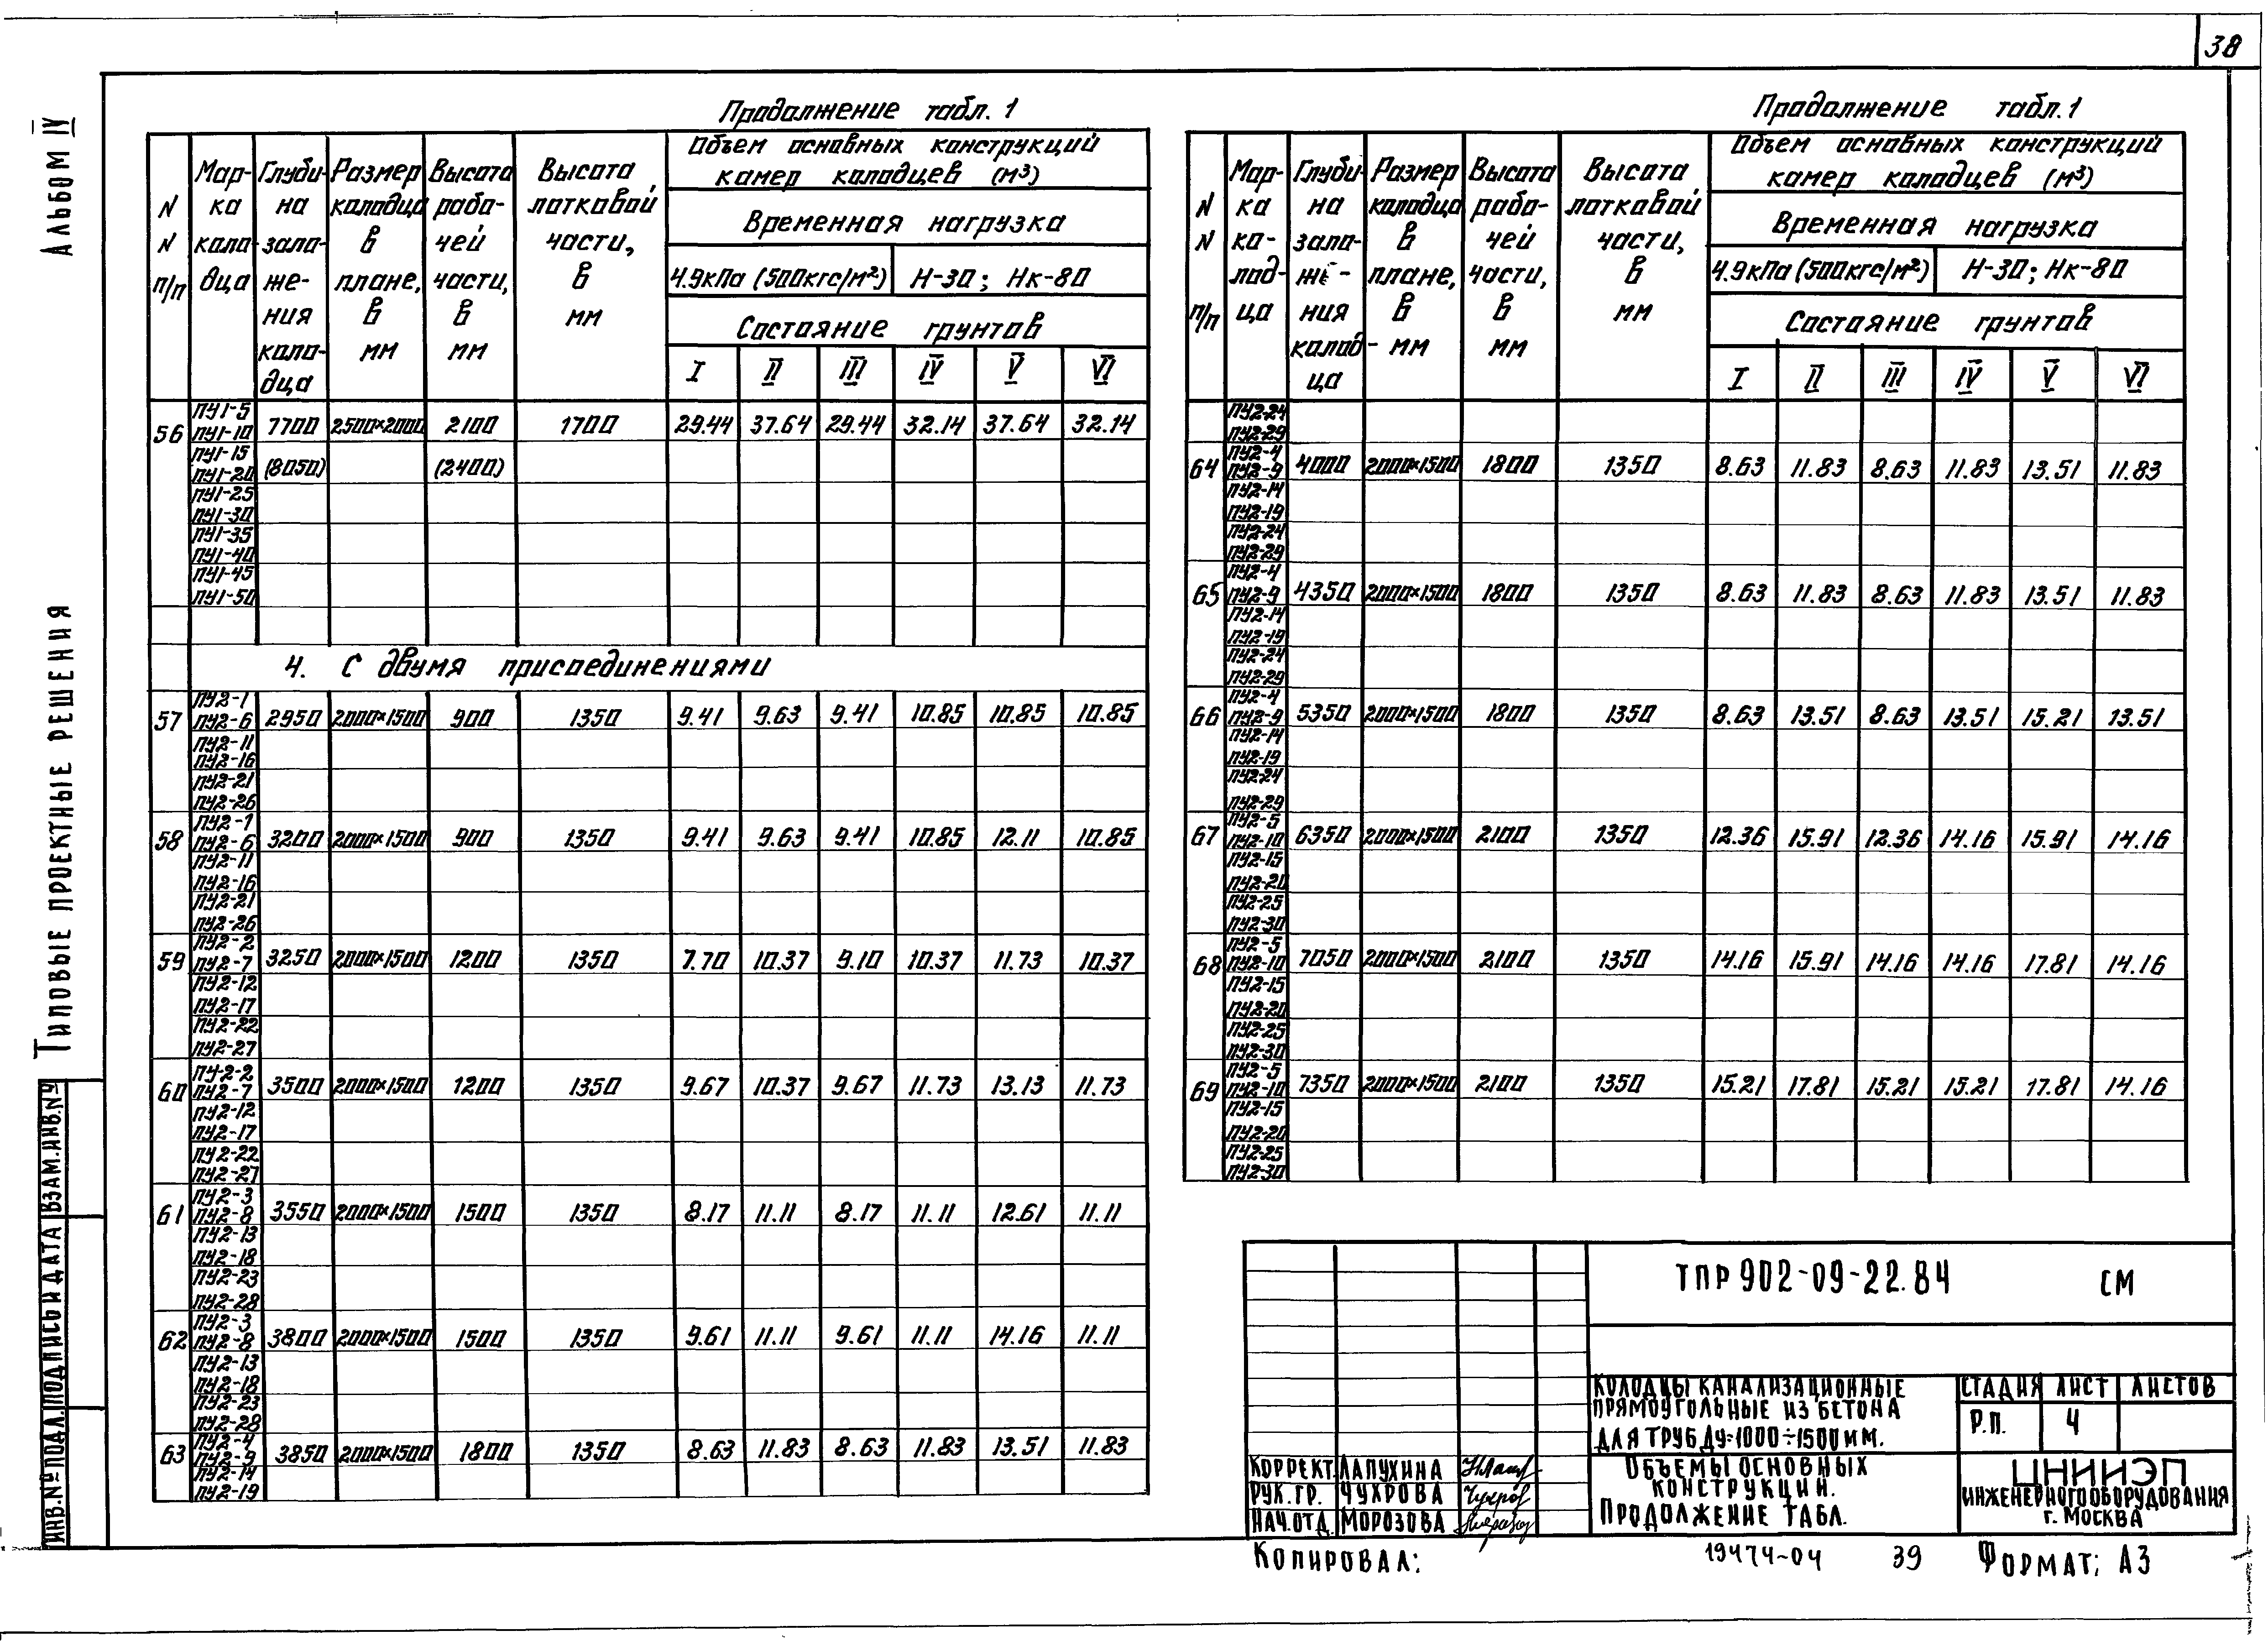 38
Альбом IV
Типовые проектные решения
Инв.№ подл. Подпись и дата Взам.инв.№
Продолжение табл. 1
N N п/п | Марка колодца | Глубина заложения колодца | Размер колодца в плане, в мм | Высота рабочей части, в мм | Высота лотковой части, в мм | Объем основных конструкций камер колодцев (м³)
Временная нагрузка
4.9кПа (500кгс/м²) | Н-30; Нк-80
Состояние грунтов
I | II | III | IV | V | VI
56 | ПУ1-5 ПУ1-10 | 7700 | 2500×2000 | 2100 | 1700 | 29.44 | 37.64 | 29.44 | 32.14 | 37.64 | 32.14
ПУ1-15 ПУ1-20 | (8050) | (2400)
ПУ1-25
ПУ1-30
ПУ1-35
ПУ1-40
ПУ1-45
ПУ1-50
4. С двумя присоединениями
57 | ПУ2-1 ПУ2-6 | 2950 | 2000×1500 | 900 | 1350 | 9.41 | 9.63 | 9.41 | 10.85 | 10.85 | 10.85
ПУ2-11
ПУ2-16
ПУ2-21
ПУ2-26
58 | ПУ2-1 ПУ2-6 | 3200 | 2000×1500 | 900 | 1350 | 9.41 | 9.63 | 9.41 | 10.85 | 12.11 | 10.85
ПУ2-11
ПУ2-16
ПУ2-21
ПУ2-26
59 | ПУ2-2 ПУ2-7 | 3250 | 2000×1500 | 1200 | 1350 | 7.70 | 10.37 | 9.10 | 10.37 | 11.73 | 10.37
ПУ2-12
ПУ2-17
ПУ2-22
ПУ2-27
60 | ПУ2-2 ПУ2-7 | 3500 | 2000×1500 | 1200 | 1350 | 9.67 | 10.37 | 9.67 | 11.73 | 13.13 | 11.73
ПУ2-12
ПУ2-17
ПУ2-22
ПУ2-27
61 | ПУ2-3 ПУ2-8 | 3550 | 2000×1500 | 1500 | 1350 | 8.17 | 11.11 | 8.17 | 11.11 | 12.61 | 11.11
ПУ2-13
ПУ2-18
ПУ2-23
ПУ2-28
62 | ПУ2-3 ПУ2-8 | 3800 | 2000×1500 | 1500 | 1350 | 9.61 | 11.11 | 9.61 | 11.11 | 14.16 | 11.11
ПУ2-13
ПУ2-18
ПУ2-23
ПУ2-28
63 | ПУ2-4 ПУ2-9 | 3850 | 2000×1500 | 1800 | 1350 | 8.63 | 11.83 | 8.63 | 11.83 | 13.51 | 11.83
ПУ2-14
ПУ2-19
Продолжение табл. 1
N N п/п | Марка колодца | Глубина заложения колодца | Размер колодца в плане, в мм | Высота рабочей части, в мм | Высота лотковой части, в мм | Объем основных конструкций камер колодцев (м³)
Временная нагрузка
4.9кПа (500кгс/м²) | Н-30; Нк-80
Состояние грунтов
I | II | III | IV | V | VI
ПУ2-24
ПУ2-29
64 | ПУ2-4 ПУ2-9 | 4000 | 2000×1500 | 1800 | 1350 | 8.63 | 11.83 | 8.63 | 11.83 | 13.51 | 11.83
ПУ2-14
ПУ2-19
ПУ2-24
ПУ2-29
65 | ПУ2-4 ПУ2-9 | 4350 | 2000×1500 | 1800 | 1350 | 8.63 | 11.83 | 8.63 | 11.83 | 13.51 | 11.83
ПУ2-14
ПУ2-19
ПУ2-24
ПУ2-29
66 | ПУ2-4 ПУ2-9 | 5350 | 2000×1500 | 1800 | 1350 | 8.63 | 13.51 | 8.63 | 13.51 | 15.21 | 13.51
ПУ2-14
ПУ2-19
ПУ2-24
ПУ2-29
67 | ПУ2-5 ПУ2-10 | 6350 | 2000×1500 | 2100 | 1350 | 12.36 | 15.91 | 12.36 | 14.16 | 15.91 | 14.16
ПУ2-15
ПУ2-20
ПУ2-25
ПУ2-30
68 | ПУ2-5 ПУ2-10 | 7050 | 2000×1500 | 2100 | 1350 | 14.16 | 15.91 | 14.16 | 14.16 | 17.81 | 14.16
ПУ2-15
ПУ2-20
ПУ2-25
ПУ2-30
69 | ПУ2-5 ПУ2-10 | 7350 | 2000×1500 | 2100 | 1350 | 15.21 | 17.81 | 15.21 | 15.21 | 17.81 | 14.16
ПУ2-15
ПУ2-20
ПУ2-25
ПУ2-30
ТПР 902-09-22.84 СМ
Колодцы канализационные
прямоугольные из бетона
для труб Ду=1000÷1500мм.
Стадия | Лист | Листов
Р.П. | 4
Объемы основных
конструкций.
Продолжение табл.
ЦНИИЭП
инженерного оборудования
г. Москва
Коррект. Лапухина
Рук.гр. Чухрова
Нач.отд. Морозова
Копировал:
19474-04 39
Формат: А3